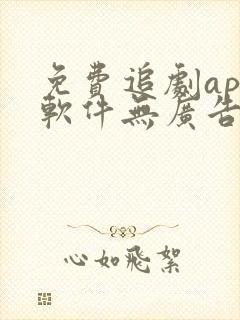 免費追劇ap
軟件無廣告
心如飛絮